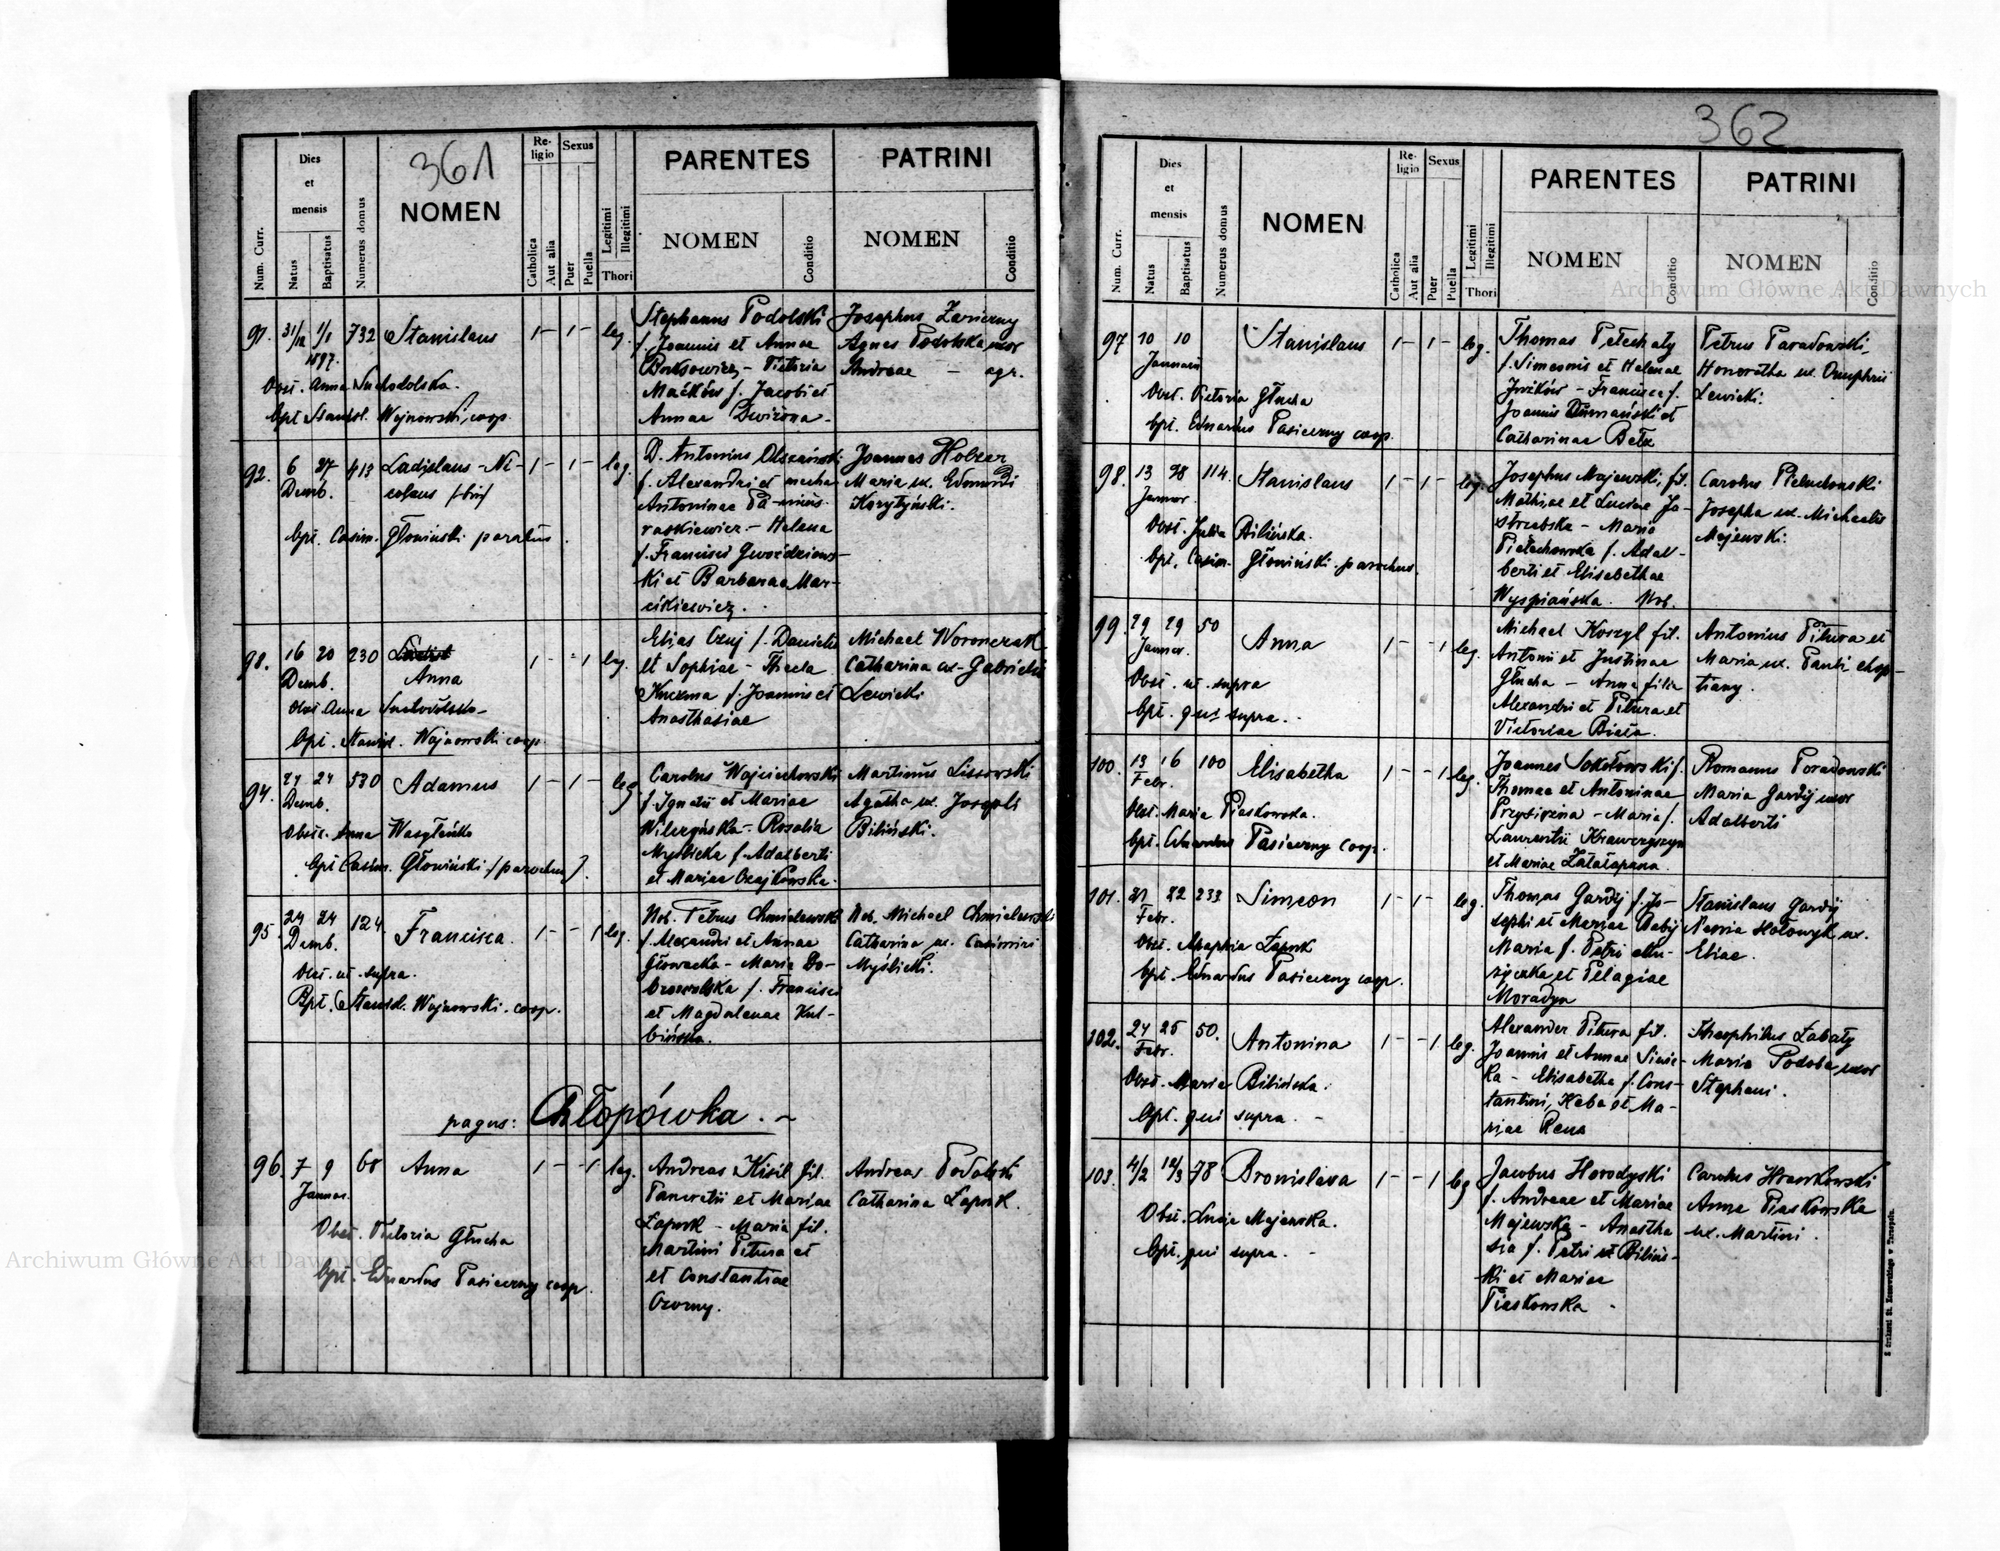 361
Num. Curr.
Dies et mensis
Natus
Baptisatus
Numerus domus
NOMEN
Religio
Catholica
Aut alia
Sexus
Puer
Puella
Legitimi
Illegitimi
Thori
PARENTES
NOMEN
Conditio
PATRINI
NOMEN
Conditio
91. 31/12 1/1 1897. 732 Stanislaus 1 – 1 – leg.
Obst. Anna Suchodolska.
Bpt. Stanisl. Wojnowski, coop.
Stephanus Podolski
f. Joannis et Annae
Borysowicz – Victoria
Maćków f. Jacobi et
Annae
Josephus
Agnes Podolska uxor
Andreae – agr.
92. 6 27 Dcmb. 413 Ladislaus-Ni-
colaus /bin/ 1 – 1 – leg.
bpt. Casim. Głowiński parochus.
D. Antonius Olszański
f. Alexandri et
Antoninae Pa-
raskiewicz – Helena
f. Francisci Gwoździows-
ki et Barbarae Mar-
cikiewicz.
Joannes Holzer
Maria ux. Edmundi
Korytyński.
93. 16 20 Dcmb. 230
Anna 1 – – 1 leg.
Obst. Anna Suchodolska
bpt. Stanisl. Wojnowski coop.
Elias Czuj f. Danielis
et Sophiae – Thecla
Kuczma f. Joannis et
Anasthasiae
Michael Woronczak
Catharina ux. Gabrielis
Lewicki
94. 24 Dcmb. 530 Adamus 1 – 1 – leg
Obst. Anna Wasylenko
bpt. Casim. Głowiński /parochus/.
Carolus Wojciechowski
f. Ignatii et Mariae
Wilczyńska – Rosalia
Myślicka f. Adalberti
et Mariae Czajkowska.
Martinus Lissowski
Agatha ux. Josephi
Biliński.
95. 24 24 Dcmb. 124 Francisca. 1 – – 1 leg.
Obst. ut supra.
Bpt. Stanisl. Wojnowski. coop.
Nob. Petrus Chmielewski
f. Alexandri et Annae
Głowacka – Maria Do-
browolska f. Francisci
et Magdalenae Kul-
bińska.
Nob. Michael Chmielewski
Catharina ux. Casimiri
Myślicki.
pagus: Chłopówka. –
96. 7 9 Januar. 68 Anna 1 – – 1 leg.
Obst. Victoria Głucha
bpt. Eduardus Pasieczny coop.
Andreas Kisil fil.
Pancratii et Mariae
Łapuk – Maria fil.
Martini Pitura et
et Constantiae
Czorny.
Andreas Podolski
Catharina Łapuk.
362
Num. Curr.
Dies et mensis
Natus
Baptisatus
Numerus domus
NOMEN
Religio
Catholica
Aut alia
Sexus
Puer
Puella
Legitimi
Illegitimi
Thori
PARENTES
NOMEN
Conditio
PATRINI
NOMEN
Conditio
97 10 10 Januarii Stanislaus 1 – 1 – leg.
Obst. Victoria Głucha
bpt. Eduardus Pasieczny coop.
Thomas Petechaty
f. Simeonis et Helenae
Juzików – Francisca f.
Joannis Tumański et
Catharinae Betz
Petrus Paradowski,
Honoratha ux. Onuphrii
Lewicki.
98. 13 28 Januar. 114. Stanislaus 1 – 1 – leg.
Obst. Julia Bilińska.
bpt. Casim. Głowiński parochus.
Josephus Majewski, fil.
Mathiae et Lucinae Ja-
strzebska – Maria
Pieluchowska f. Adal-
berti et Elisabethae
Wyspiańska. Nob.
Carolus Pieluchowski
Josepha ux. Michaelis
Majewski.
99. 29 29 Januar. 50 Anna 1 – – 1 leg.
Obst. ut supra
bpt. qui supra.
Michael Koszyl fil.
Antonii et Justinae
Głucha – Anna filia
Alexandri et Pitura et
Victoriae Biała.
Antonius Pitura et
Maria ux. Pauli Chop-
tiany.
100. 13 16 Febr. 100 Elisabetha 1 – – 1 leg.
Obst. Maria Piaskowska.
bpt. Eduardus Pasieczny coop.
Joannes Sokołowski f.
Thomae et Antoninae
– Maria f.
Laurentii Krawczyszyn
et Mariae
Romanus Poradowski
Maria Gardij uxor
Adalberti
101. 21 22 Febr. 233 Simeon 1 – 1 – leg.
Obst. Agaphia Łapuk
bpt. Eduardus Pasieczny coop.
Thomas Gardij f. Jo-
sephi et Mariae Babij
Maria f. Petri Mu-
zyczka et Pelagiae
Moradyn
Stanislaus Gardij
Xenia Hołowyk ux.
Eliae.
102. 24 25 Febr. 50. Antonina 1 – – 1 leg.
Obst. Maria Bilińska.
bpt. qui supra. –
Alexander Pitura fil.
Joannis et Annae
– Elisabetha f. Cons-
tantini, Kaba et Ma-
riae
Theophilus Łabaty
Maria Podoba uxor
Stephani.
103. 4/2 12/3 78 Bronislava 1 – – 1 leg
Obst. Lucja Majewska.
bpt. qui supra. –
Jacobus Horodyski
f. Andreae et Mariae
Majewska – Anastha
sia f. Petri et Bilińs-
ki et Mariae
Piaskowska –
Carolus Hrankowski
Anna Piaskowska
ux. Martini.
Z drukarni St. Kossowskiego w Tarnopolu.
Archiwum Główne Akt Dawnych
Archiwum Główne Akt Dawnych